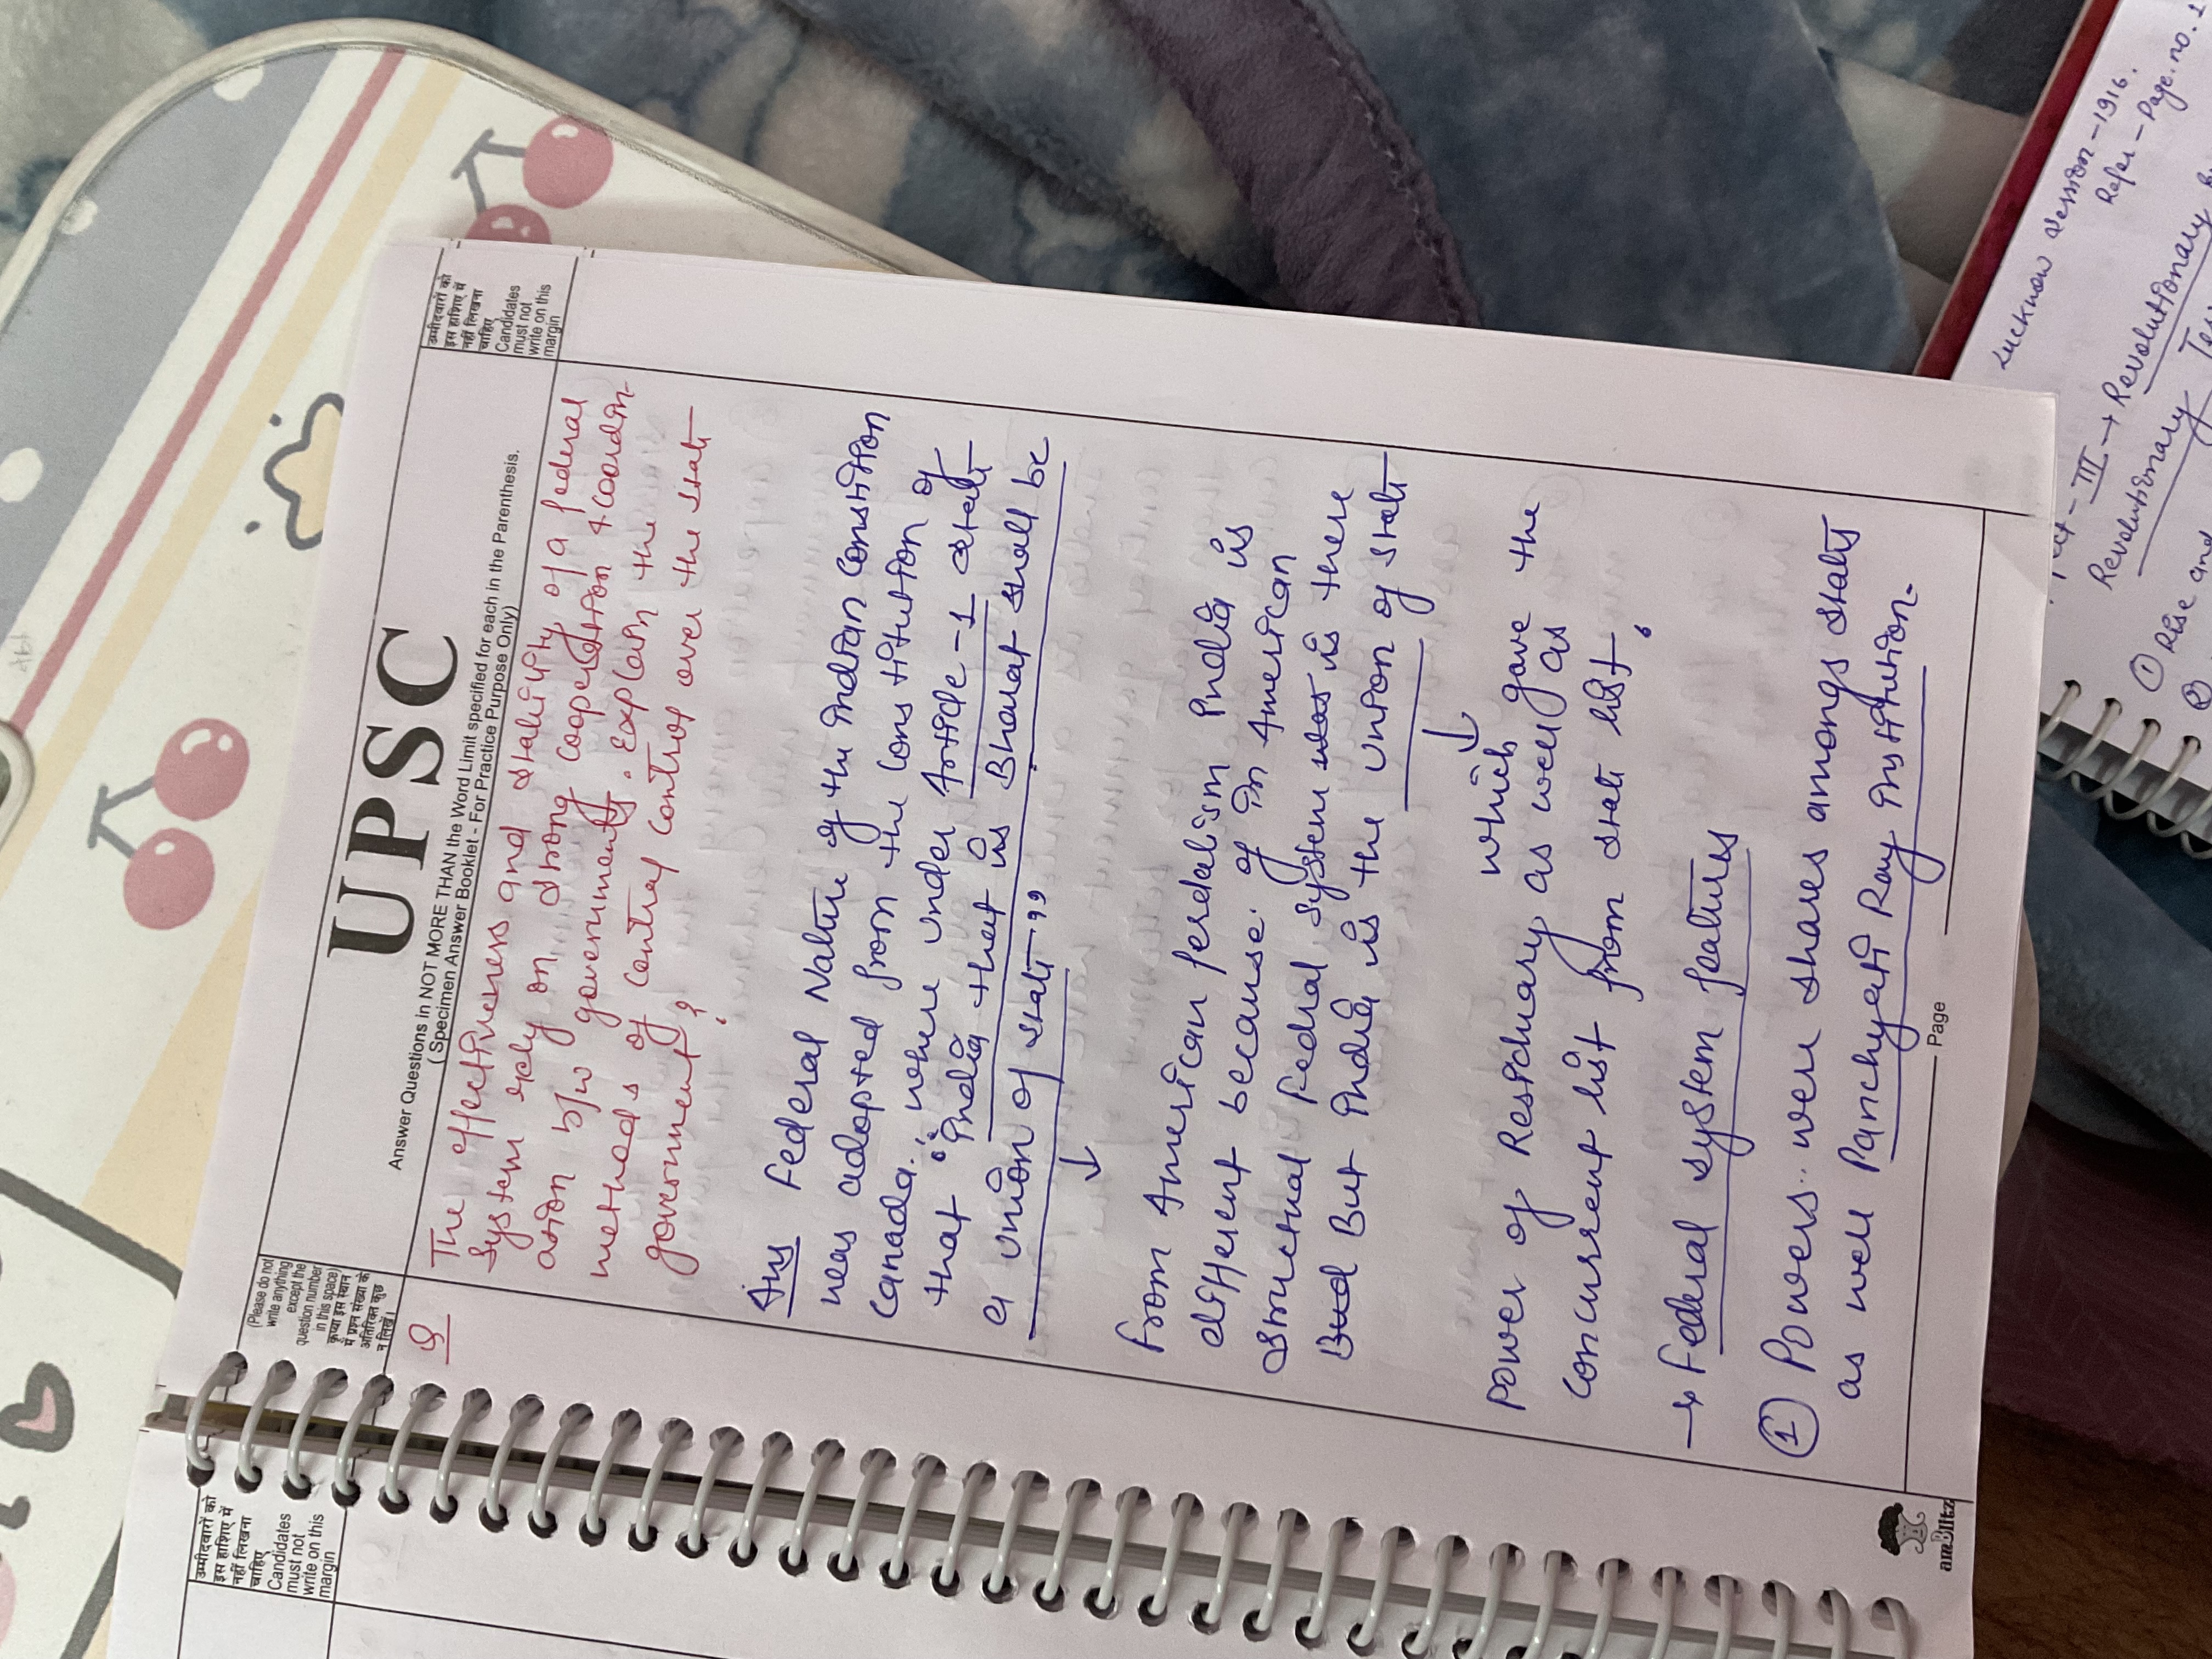 UPSC
Answer Questions in NOT MORE THAN the Word Limit specified for each in the Parenthesis.
( Specimen Answer Booklet - For Practice Purpose Only)
(Please do not
write anything
except the
question number
in this space)
कृप्या इस स्थान
में प्रश्न संख्या के
अतिरिक्त कुछ
न लिखें।
उम्मीदवारों को
इस हाशिए में
नहीं लिखना
चाहिए
Candidates
must not
write on this
margin
Q
The effectiveness and stability of a federal
system rely on strong cooperation & coordin-
ation b/w governments. Explain the
methods of central control over the state
government?
Ans Federal Nature of the Indian Constition
was adopted from the Constitution of
Canada. where under Article-1 state
that "India that is Bharat shall be
a union of state"
↓
From American Ferdelism India is
different because of in American
structural Fedral system was is there
Bud But India is the union of state
↓
which gave the
Power of Residuary as well as
Concurrent list from state list.
→ Federal system features
① Powers.. were shares amongs states
as well Panchyati Ray institution.
Page
amBlitz
उम्मीदवारों को
इस हाशिए में
नहीं लिखना
चाहिए
Candidates
must not
write on this
margin
Lucknow session-1916.
Refer - Page.no.1
III → Revolutionary
Revolutionary
① Rise and
②